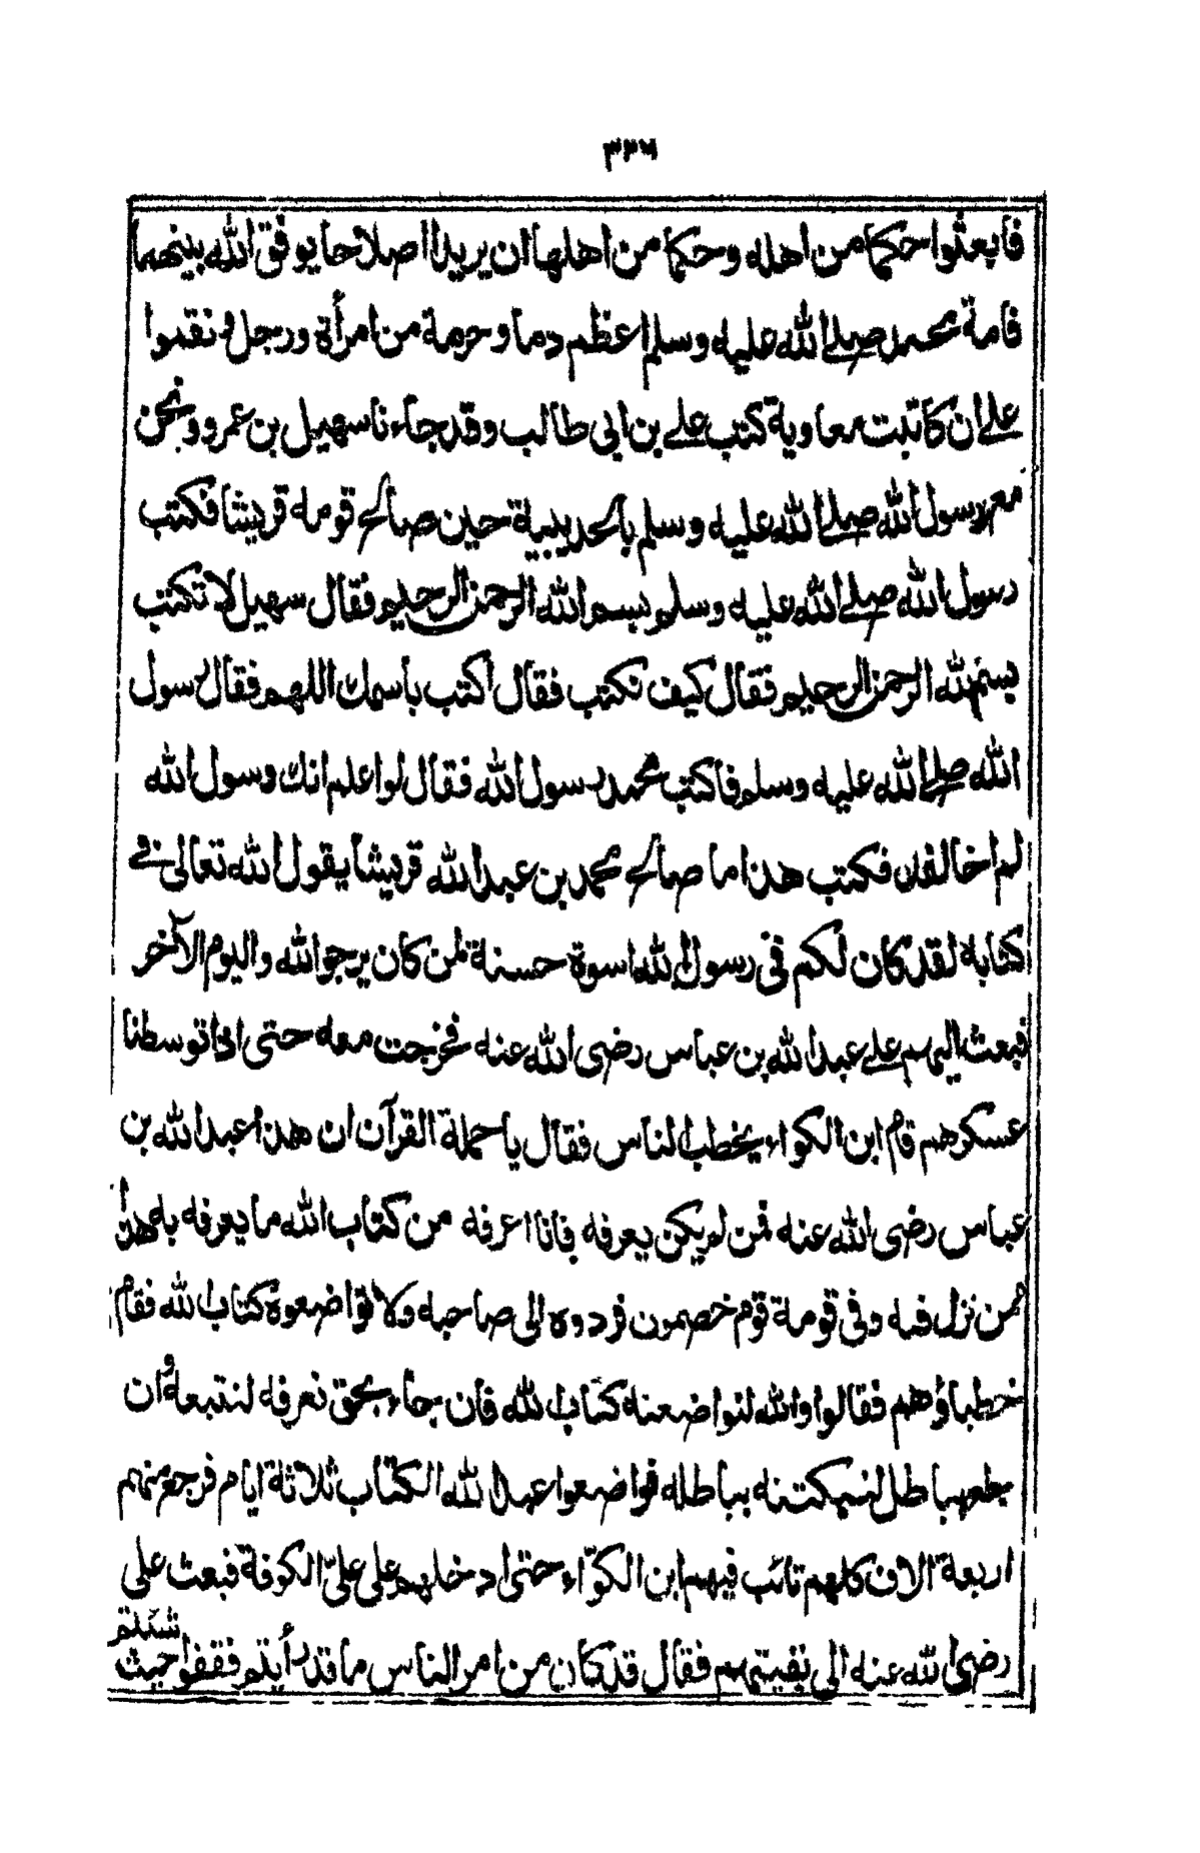 ٣٣٦
فابعثوا حكما من اهله وحكما من اهلها ان يريدا اصلاحا يوفق الله بينهما
فامة محمد صلى الله عليه وسلم اعظم دما وحرمة من امرأة ورجل ونقموا
على ان كاتبت معاوية كتب على بن ابى طالب وقد جاءنا سهيل بن عمرو ونحن
مع رسول الله صلى الله عليه وسلم بالحديبية حين صالح قومه قريشا فكتب
رسول الله صلى الله عليه وسلم بسم الله الرحمن الرحيم فقال سهيل لا تكتب
بسم الله الرحمن الرحيم فقال كيف نكتب فقال اكتب باسمك اللهم فقال رسول
الله صلى الله عليه وسلم فاكتب محمد رسول الله فقال لو اعلم انك رسول الله
لم اخالفك فكتب هذا ما صالح محمد بن عبد الله قريشا يقول الله تعالى فى
كتابه لقد كان لكم فى رسول الله اسوة حسنة لمن كان يرجو الله واليوم الآخر
فبعث اليهم على عبد الله بن عباس رضى الله عنه فخرجت معه حتى اذا توسطنا
عسكرهم قام ابن الكواء يخطب الناس فقال يا حملة القرآن ان هذا عبد الله بن
عباس رضى الله عنه فمن لم يكن يعرفه فانا اعرفه من كتاب الله ما يعرفه به هذا
ممن نزل فيه وفى قومه قوم خصمون فردوه الى صاحبه ولا تواضعوه كتاب الله فقام
خطباؤهم فقالوا والله لنواضعنه كتاب الله فان جاء بحق نعرفه لنتبعه وان
جاء بباطل لنبكتنه بباطله فواضعوا عبد الله الكتاب ثلاثة ايام فرجع منهم
اربعة الاف كلهم تائب فيهم ابن الكوّاء حتى ادخلهم على علىّ الكوفة فبعث على
رضى الله عنه الى بقيتهم فقال قد كان من امرنا وامر الناس ما قد رأيتم فقفوا حيث شئتم